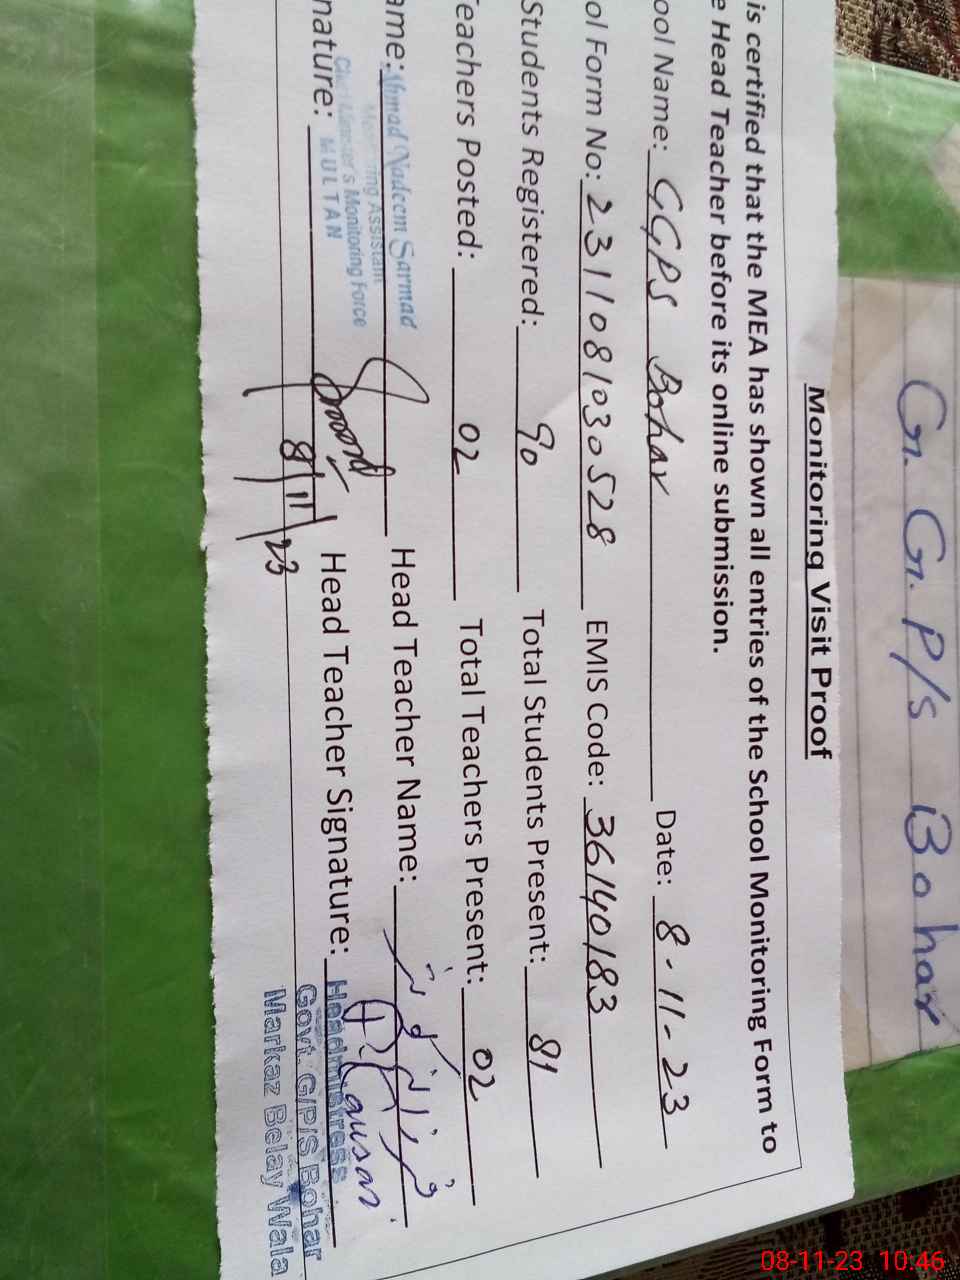 G. G. P/s Bohar
Monitoring Visit Proof
is certified that the MEA has shown all entries of the School Monitoring Form to
e Head Teacher before its online submission.
ool Name: GGPS Bohar Date: 8-11-23
ol Form No: 2311081030528 EMIS Code: 36140183
Students Registered: 90 Total Students Present: 81
eachers Posted: 02 Total Teachers Present: 02
ame: Ahmad Nadeem Sarmad Head Teacher Name:
Monitoring Assistant
Chief Minister's Monitoring Force
MULTAN
nature: 8/11/23 Head Teacher Signature: Kausar
Headmistress
Govt. G/P/S Bohar
Markaz Belay Wala
08-11-23 10:46